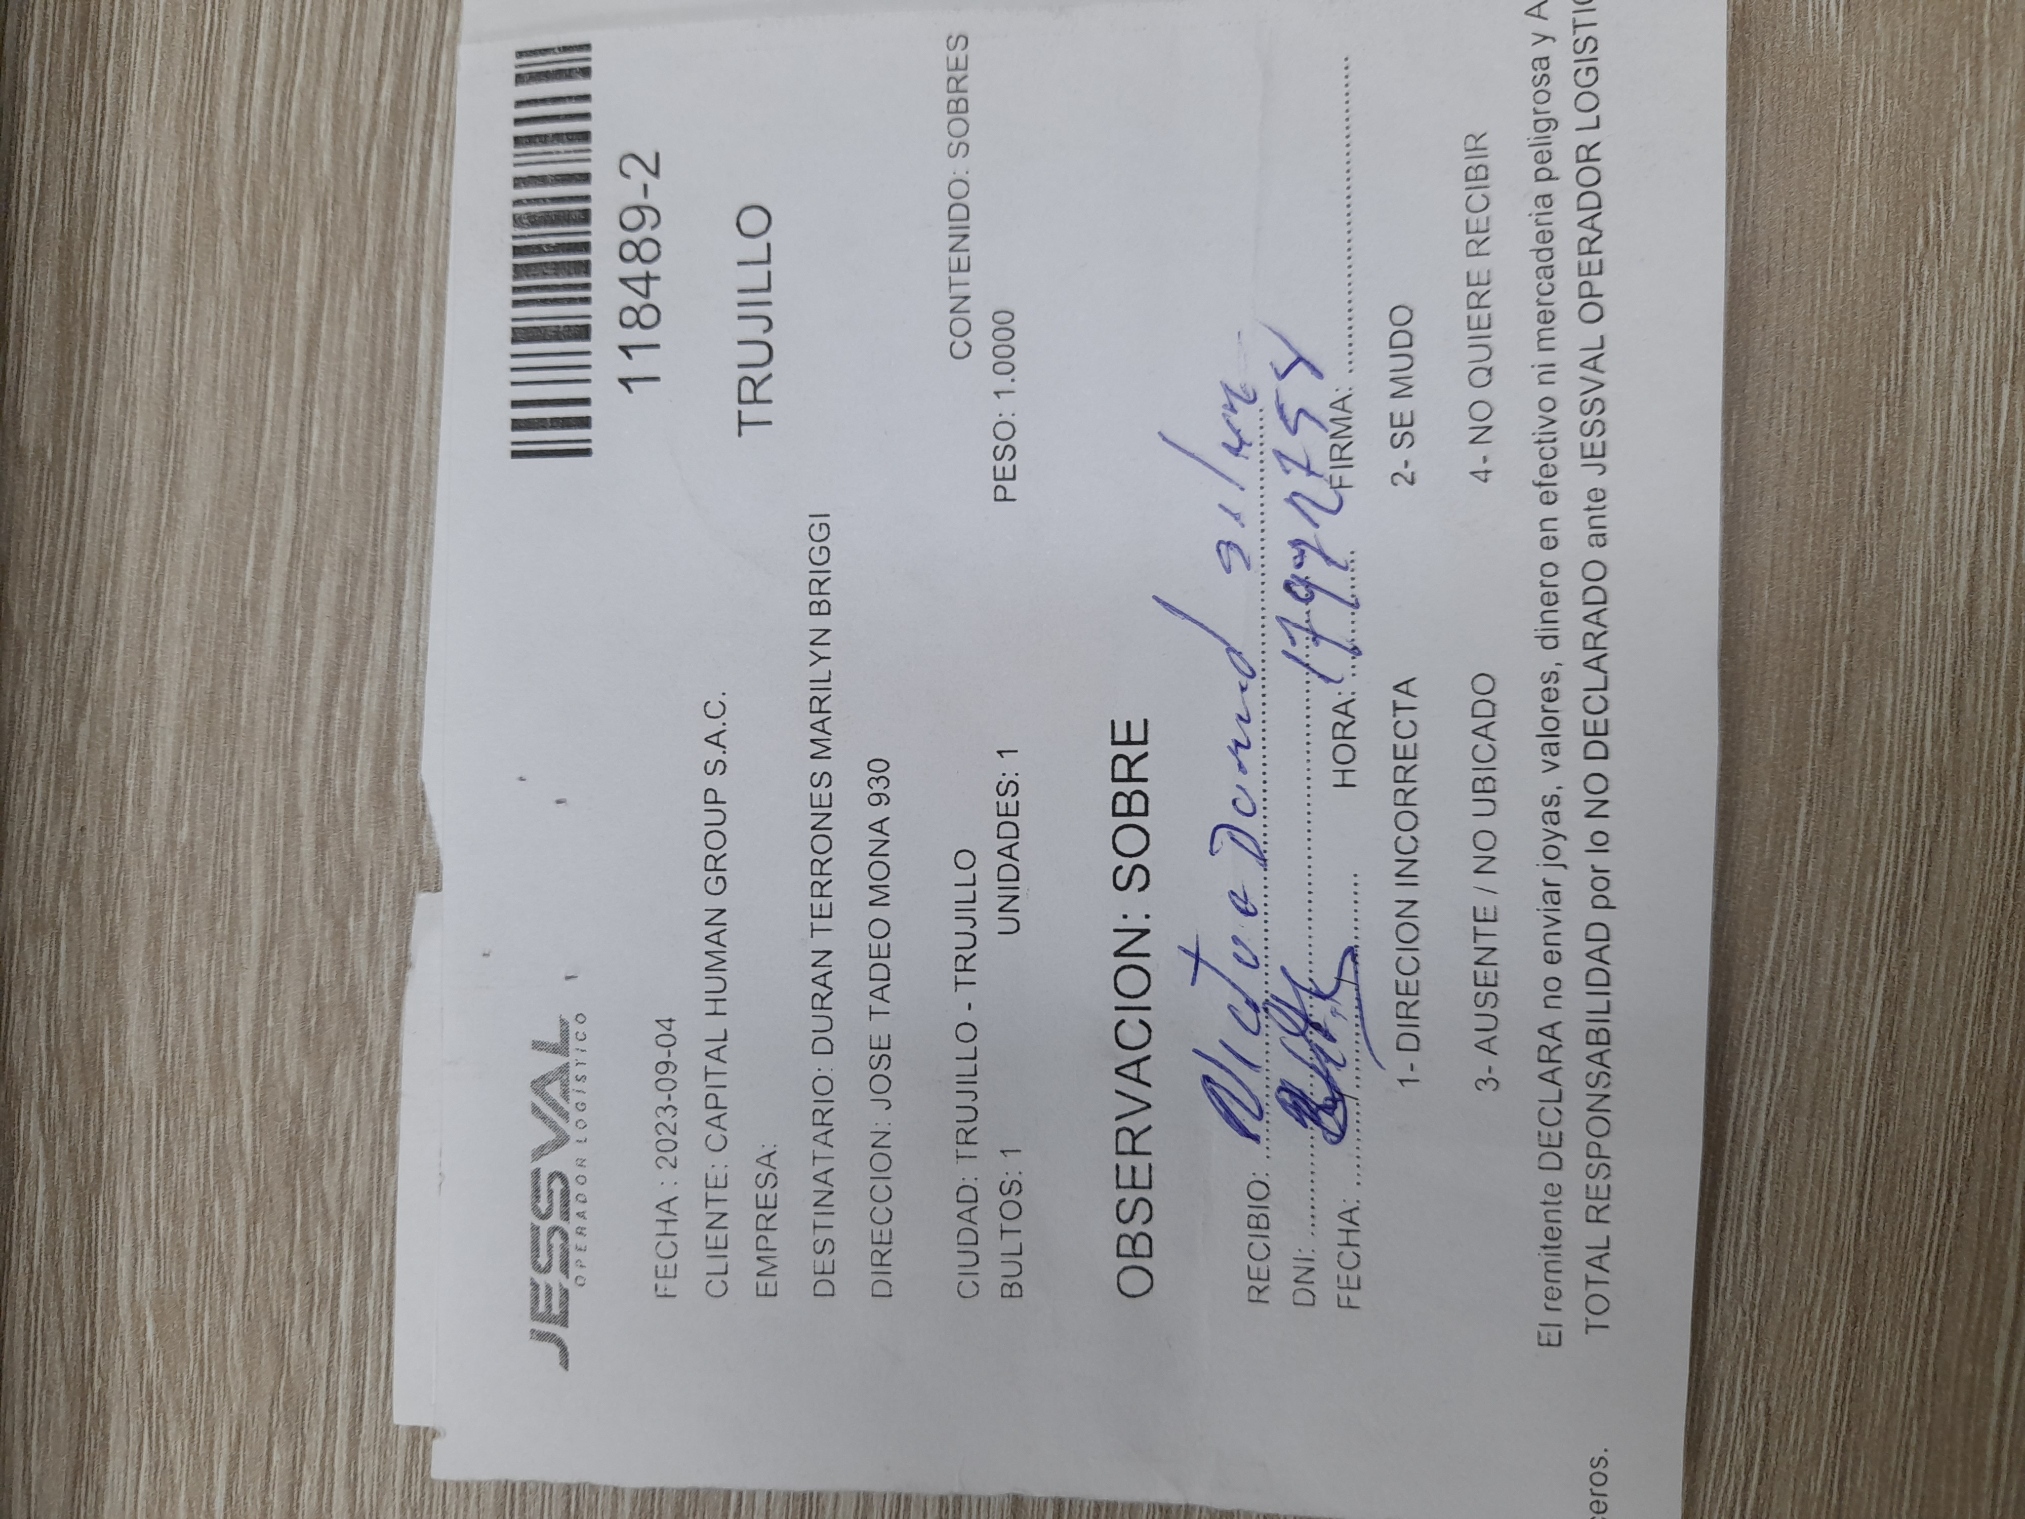 JESSVAL
OPERADOR LOGÍSTICO
118489-2
FECHA : 2023-09-04
CLIENTE: CAPITAL HUMAN GROUP S.A.C.
TRUJILLO
EMPRESA:
DESTINATARIO: DURAN TERRONES MARILYN BRIGGI
DIRECCION: JOSE TADEO MONA 930
CIUDAD: TRUJILLO - TRUJILLO CONTENIDO: SOBRES
BULTOS: 1 UNIDADES: 1 PESO: 1.0000
OBSERVACION: SOBRE
RECIBIO: Victor
DNI:
FECHA: HORA: FIRMA:
1- DIRECION INCORRECTA 2- SE MUDO
3- AUSENTE / NO UBICADO 4- NO QUIERE RECIBIR
El remitente DECLARA no enviar joyas, valores, dinero en efectivo ni mercaderia peligrosa y A
ceros. TOTAL RESPONSABILIDAD por lo NO DECLARADO ante JESSVAL OPERADOR LOGISTIC